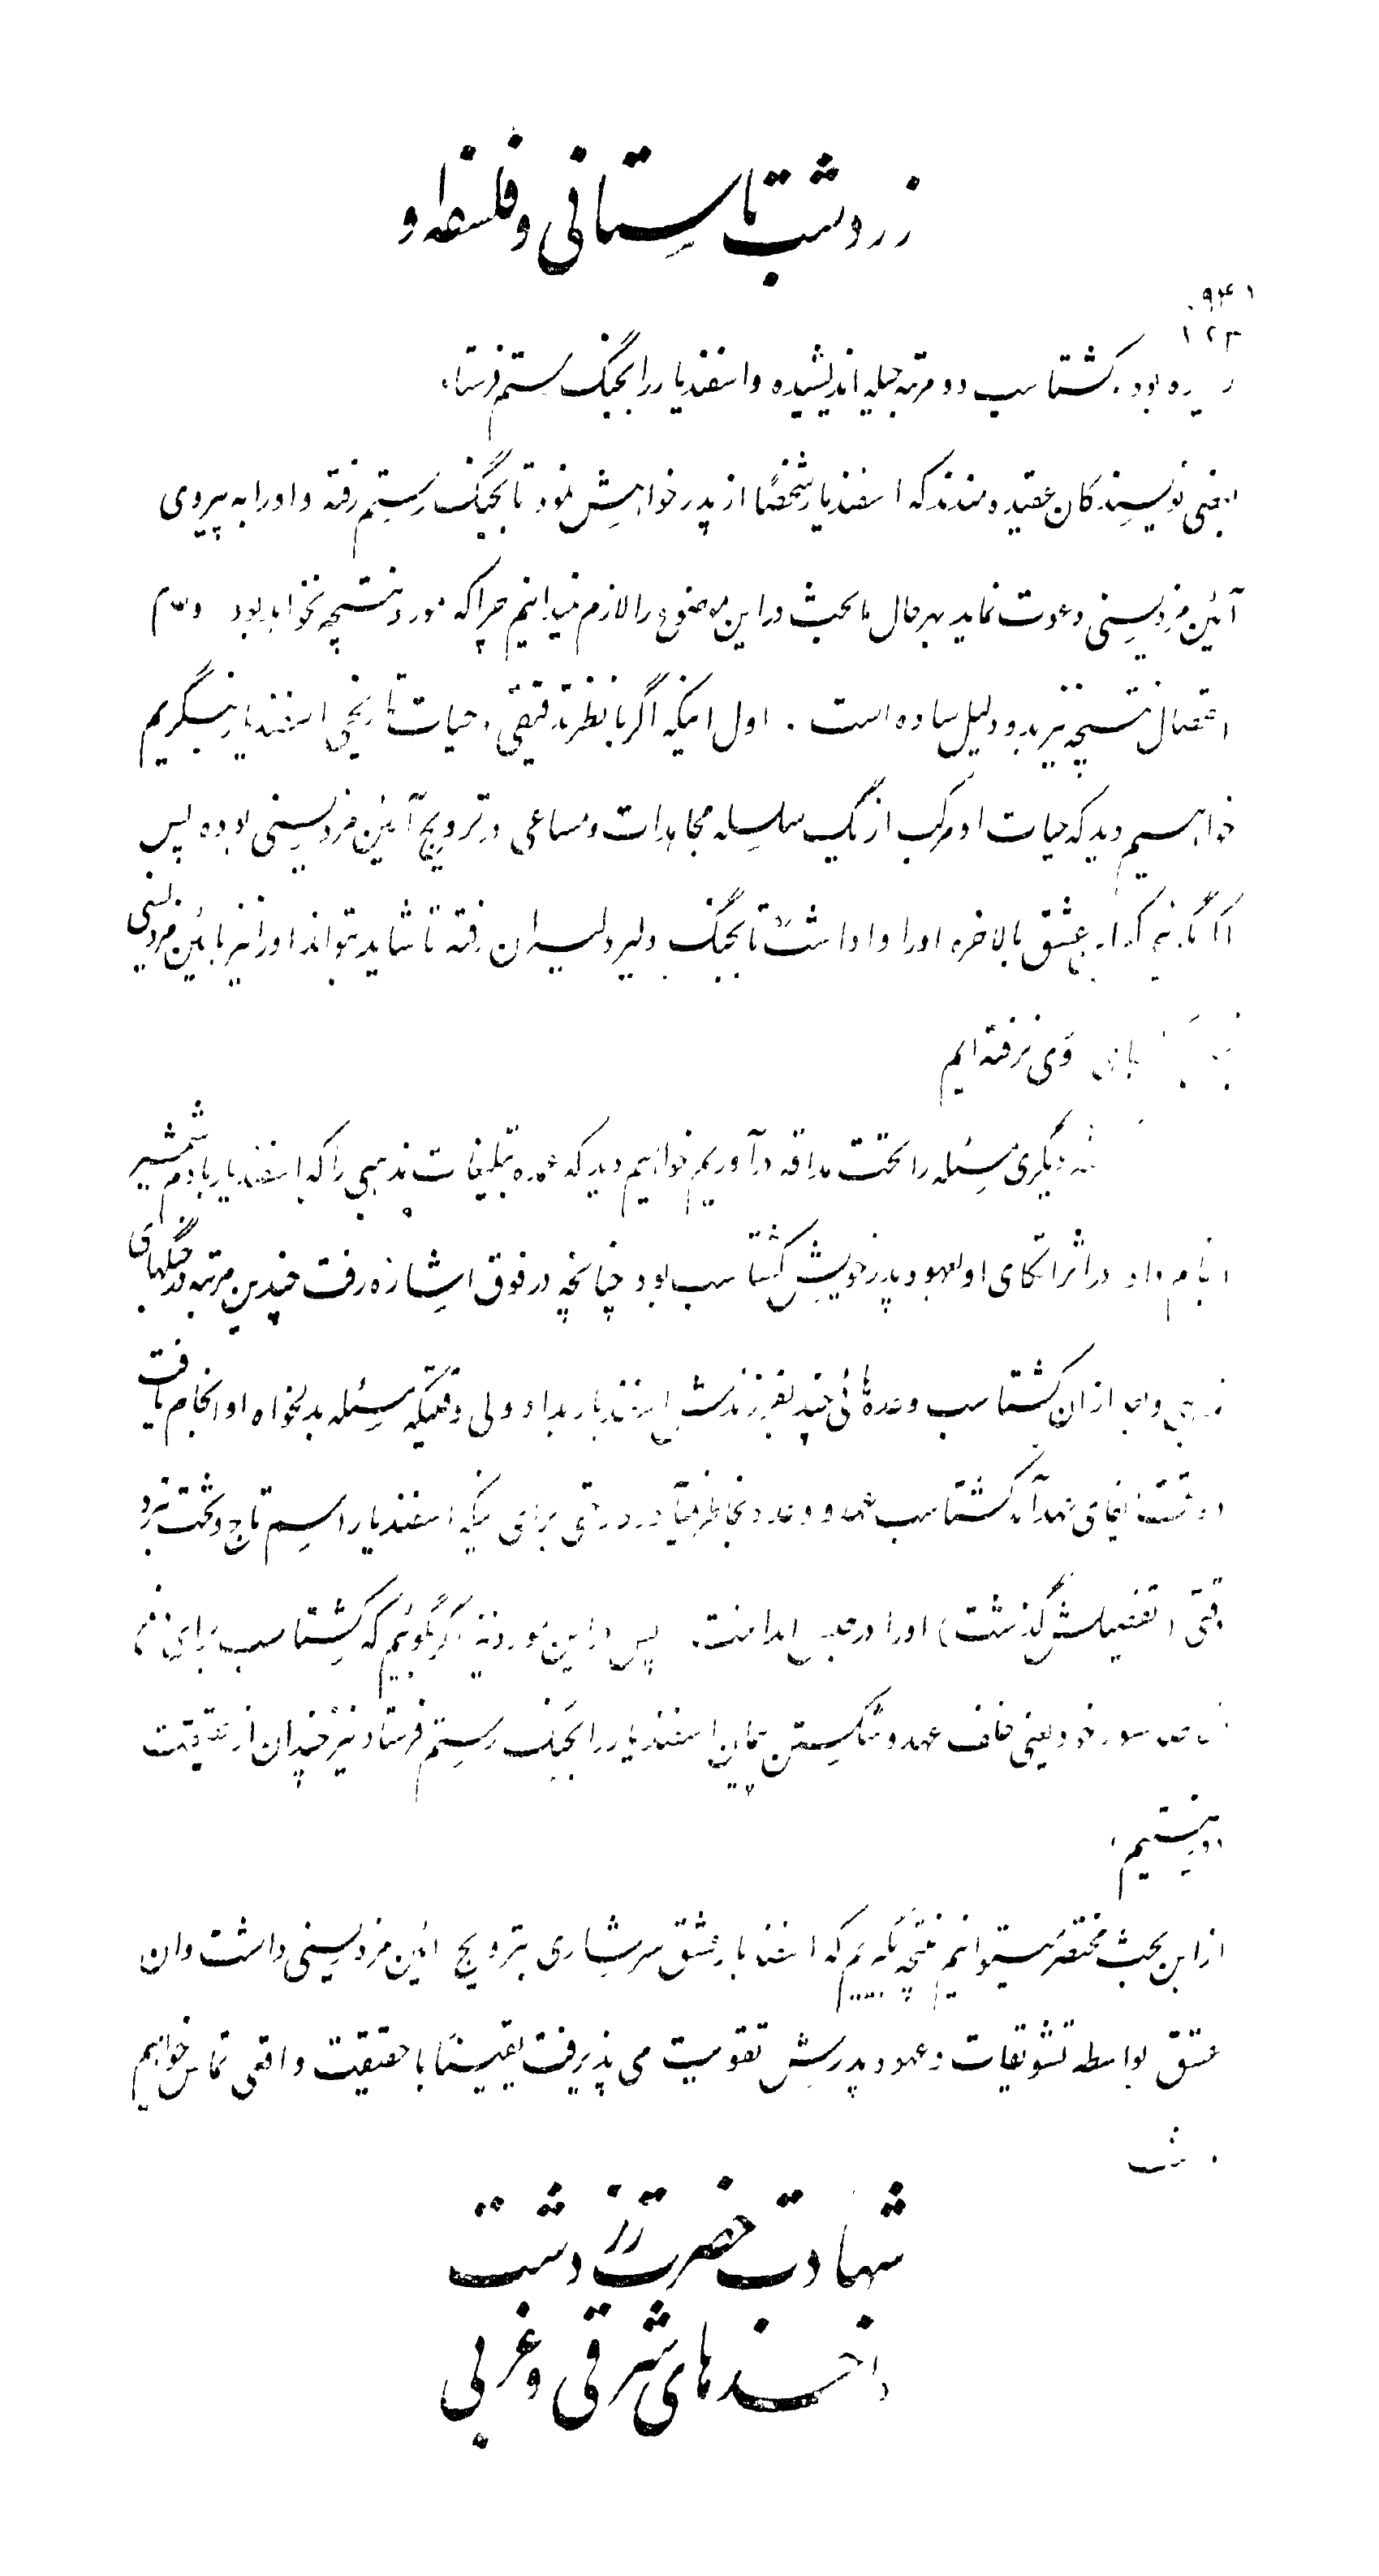 زردشت باستانی و فلسفه او
بود. گشتاسب دو مرتبه حیله اندیشیده و اسفندیار را بجنگ رستم فرستاد
بعضی نویسندگان عقیده‌مندند که اسفندیار شخصاً از پدر خواهش نمود تا بجنگ رستم رفته و او را به پیروی
آئین مزدیسنی دعوت نماید بهرحال ما بحث در این موضوع را لازم نمیدانیم چراکه مورد نتیجه نخواهد بود
نتیجه نیز بدو دلیل ساده است . اول اینکه اگر با نظر تدقیقی حیات تاریخی اسفندیار بنگریم
خواهیم دید که حیات او مرکب از یک سلسله مجاهدات و مساعی در ترویج آئین مزدیسنی بوده پس
عشق بالاخره او را واداشت تا بجنگ دلیر دلیران رفته تا شاید بتواند او را نیز بائین مزدیسنی
نرفته ایم
دیگری مسئله را تحت مداقه درآوریم خواهیم دید که عمده تبلیغات مذهبی را که اسفندیار با دم شمشیر
انجام داد در اثر اتکای او بعهود پدر خویش گشتاسب بود چنانچه در فوق اشاره رفت چندین مرتبه در جنگهای
از ان گشتاسب وعده‌ٔهائی چند بفرزندش اسفندیار بداد ولی وقتیکه مسئله بدلخواه او انجام یافت
گشتاسب عهد و وعده بخاطر نمیآورد حتی برای اینکه اسفندیار اسم تاج و تخت نبرد
وقتی (تفصیلش گذشت) او را در حبس انداخت. پس در این مورد نیز اگر بگوئیم که گشتاسب برای
خود یعنی خلف عهد و شکستن پیمان اسفندیار را بجنگ رستم فرستاد نیز چندان از حقیقت
دور نیستیم.
از این بحث مختصر میتوانیم نتیجه بگیریم که اسفندیار عشق سرشاری بترویج ائین مزدیسنی داشت وان
عشق بواسطه تشویقات و عهود پدرش تقویت می پذیرفت یقیناً با حقیقت واقعی تماس خواهیم
داشت
شهادت حضرت زردشت
ماخذهای شرقی و غربی